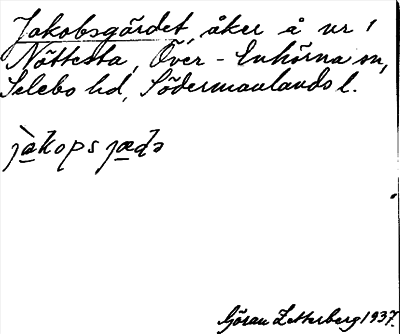 Jakobsgärdet, åker å nr 1
Nöttesta, Över-Enhörna sn,
Selebo hd, Södermanlands l.
jàkops jædə
Göran Zetterberg 1937.